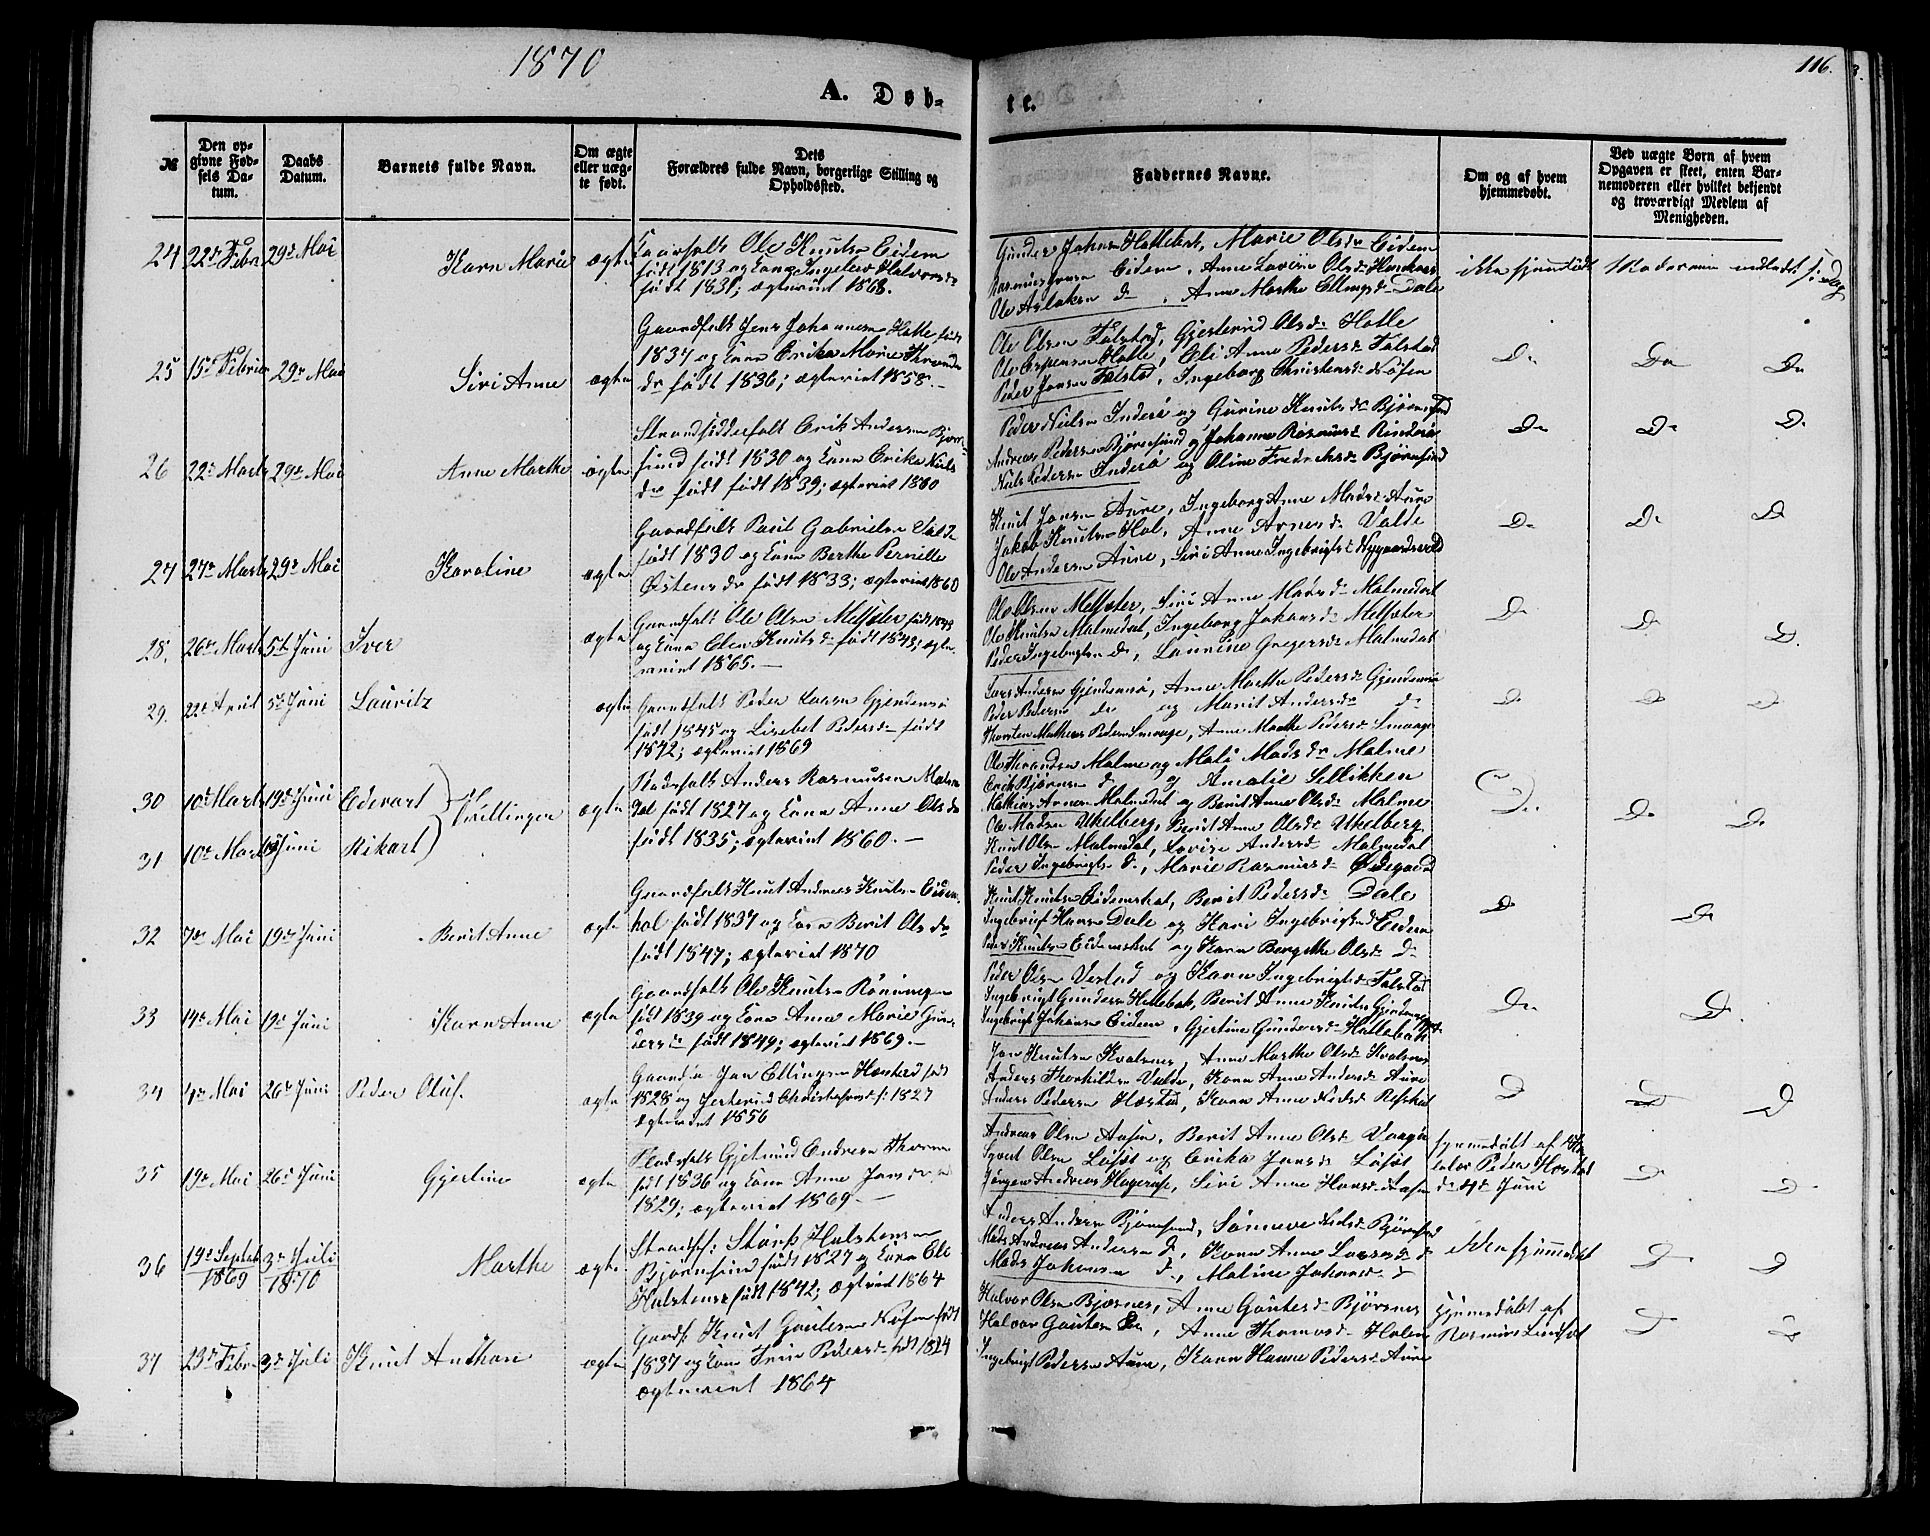 1870
116.
A. Døb-
te.
№
Den op-
givne Fød-
sels Da-
tum.
Daabs
Datum.
Barnets fulde Navn.
Om ægte
eller uæg-
te født.
Dets
Forældres fulde Navn, borgerlige Stilling og
Opholdssted.
Faddernes Navne.
Om og af hvem
hjemmedøbt.
Ved uægte Børn af hvem
Opgaven er skeet, enten Bar-
nemoderen eller hvilket bekjendt
og troværdigt Medlem af
Menigheden.
24 22d Febr 29d Mai Karn Marie ægte
Gaardfolk Ole Knuts Eidem
født 1813 og Kone Ingeleiv Halvorsdr
født 1831; ægteviet 1868.
Gunder Johns Hollebak, Marie Olsdr Eidem
Rasmus Eidem, Anne Lovise Olsd
Ole Aslaksen d, Anne Marthe Ellingsd Dale
ikke hjemdøbt
25 15d Febr 29d Mai Siri Anne ægte
Gaardfolk Jens Johannesen Holle født
1837 og Kone Erika Marie
dr født 1836; ægteviet 1858.
Ole Olsen Talstad, Gjertrud Olsd Holle
Ole Espensen Holle, Eli Anne Pedersd Talstad
Peder Jonsen Talstad, Ingeborg Christensd Nøsen
D D D
26 22d Marts 29d Mai Anne Marthe ægte
Strandsidderfolk Erik Andersen Bjørn-
sund født 1830 og Kone Erika Niels
dr født født 1839; ægteviet 1860
Peder Nielsen Inderø og Gurine Knutsd Bjørnsund
Andreas Pedersen Bjørnsund og Johanne Rasmusd Rinderø
Niels Pedersen Inderø og Oline Fredriksd Bjørnsund
D D D
27 27d Marts 29d Mai Karoline ægte
Gaardfolk Paul Gabrielsen
født 1830 og Kone Berthe Pernille
Østensdr født 1833; ægteviet 1860
Knut Jonsen Aure, Ingeborg Anne Madsd Aure
Jakob Knutsen Hol, Anne Arnesd Valde
Ole Andersen Aure, Siri Anne Ingebrigtsd
D D D
28. 26d Marts 5t Juni Iver ægte
Gaardfolk Ole Olsen Melsæter født 1843
og Kone Elen Knutsd født 1843; ægte-
viet 1865.
Ole Olsen Melsæter, Siri Anne Madsd Malmedal
Ole Knutsen Malmedal, Ingeborg Johansd Melsæter
Peder Ingebrigtsen d, Laurine Gregersd Malmedal
D D D
29. 22d April 5d Juni Lauritz ægte
Gaardfolk Peder Larsen Gjendemsø
født 1845 og Lisebet Pedersd født
1842; ægteviet 1869
Lars Andersen Gjendemsø, Anne Marthe Pedersd Gjendemsø
Peder Pedersen do og Marit Andersd d
Thorsten Mathias Pedersen Smaage, Anne Marthe Pedersd Smaage
D D D
30 10d Marts 19d Juni Edevart
Tvillinger ægte
31 10d Marts 19d Juni Rikart
Pladsfolk Anders Rasmusen Malme-
dal født 1827 og Kone Anne Olsdr
født 1835; ægteviet 1860.
Ole Malme og Mali Madsdr Malme
Erik Bjørnsen d og Amalie Sellikken
Mathias Arnesen Malmedal og Berit Anne Olsd Malme
Ole Madsen Ukelberg, Berit Anne Olsd Ukelberg
Knut Olsen Malmedal, Lovise Andersd Malmedal
Peder Ingebrigts d, Marie Rasmusd Ødegaard
D D D
32 7d Mai 19d Juni Berit Anne ægte
Gaardfolk Knut Andreas Knuts Eidem-
hol født 1837 og Kone Berit Olsdr
født 1847; ægteviet 1870
Knut Knutsen, Berit Pedersd Dale
Ingebrigt Hansen Dale og Kari Ingebrigtsd Eidem
Peder Knutsen og Karn Bergithe Olsd d
D D
33 14d Mai 19d Juni Karn Anne ægte
Gaardfolk Ole Knutsen Rønningen
født 1839 og Kone Anne Marie Gun-
dersd født 1849; ægteviet 1869.
Peder Olsen Vestad og Karn Ingebrigtsd Talstad
Ingebrigt Gundersen Hollebak, Berit Anne Knutsd
Ingebrigt Johansen Eidem, Gjertine Gundersd Hollebak
D D
34 4d Mai 26d Juni Peder Oluf. ægte
Jon Ellingsen født
1828 og Gjertrud 1827
ægteviet 1856
Jon Knutsen Kvalsnes, Anne Marthe Olsd Kvalsnes
Anders Thorkildsen Valde, Karn Anne Andersd Aure
Anders Pedersen Hæstad, Karn Anne Nielsd
D D D
35 19d Mai 26d Juni Gjertine ægte
Pladsfolk Gjetmund Endresen
født 1836 og Kone Anne Jonsd
1829; ægteviet 1869.
Andreas Olsen Aasen, Berit Anne Olsd
Syvert Olsen Løset og Erika Jonsd Løset
Jørgen Andreas Hagerup, Siri Anne Hansd Aasen
hjemmedøbt af
Peder Horstad
Juni
D D
36 19d Septbr 1869 3d Juli 1870 Marthe ægte
Strandsf: Halstensen
Bjørnsund født 1827 og Kone Eli
Halstensd født 1842; ægteviet 1864
Anders Andersen Bjørnsund, Sønneve Nielsd Bjørnsund
Mads Andreas Andersen d, Karn Anne Larsd d
Mads Johansen d, Maline Johansd d
ikke hjemmedøbt
D D
37 23d Febr 3d Juli Knut Anthon ægte
Gaardf. Knut Gautesen Nøsen født
1837 og Kone Pedersd født 1824
ægteviet 1864
Halvor Olsen Bjørsnes, Anne Gautesd Bjørsnes
Halvor Gautesen, Anne Thomasd Holen
Ingebrigt Pedersen Aure, Karn Hanne Pedersd Aure
hjemmedøbt af
Rasmus Lindset
D